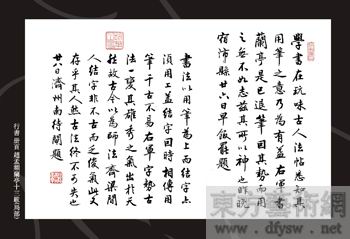 學書在玩味古人法帖悉知其
用筆之意乃為有益右軍書
蘭亭是已退筆因其勢而用
之無不如志茲其所以神也昨晚
宿沛縣廿六日早飯罷題
書法以用筆為上而結字亦
須用工蓋結字因時相傳用
筆千古不易右軍字勢古
法一變其雄秀之氣出於天
然故古今以為師法齊梁間
人結字非不古而乏俊氣此又
存乎其人然古法終不可失也
廿八日濟州南待閘題
行書 趙孟頫蘭亭十三跋(局部)
東方藝術網